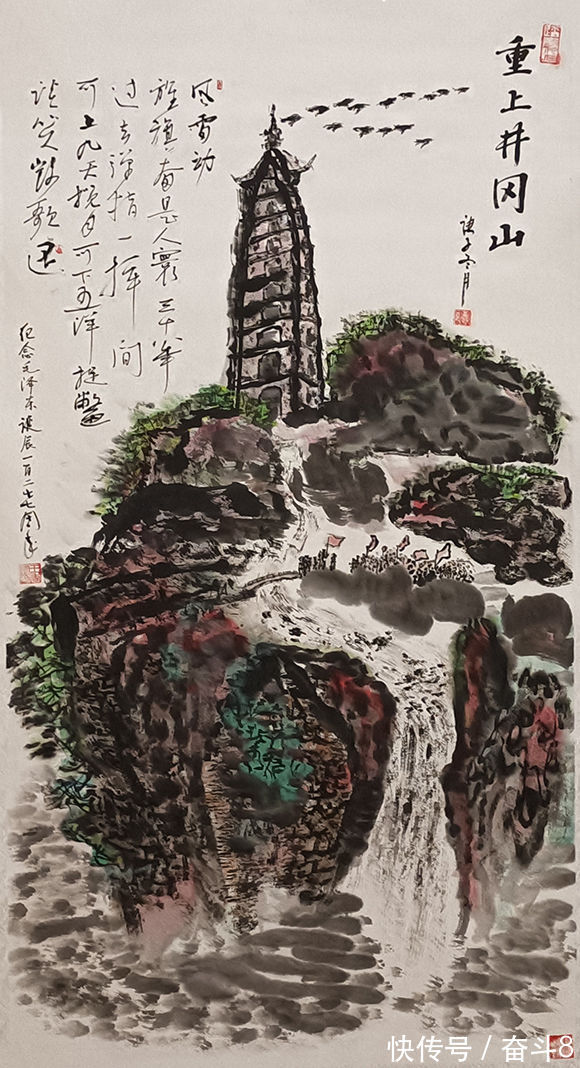 重上井冈山
庚子冬月
风雷动
旌旗奋是人寰三十八年
过去弹指一挥间
可上九天揽月可下五洋捉鳖
谈笑凯歌还
纪念毛泽东诞辰一百二十七周年
快传号 / 奋斗8